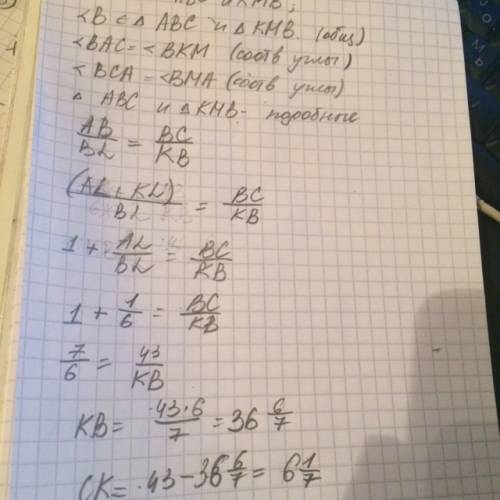 ABC и KMB,
<B ∈ Δ ABC и Δ KMB (общ)
<BAC = <BKM (соотв углы)
<BCA = <BMA (соотв углы)
Δ ABC и Δ KMB - подобные
AB/BL = BC/KB
(AL + KL)/BL = BC/KB
1 + AL/BL = BC/KB
1 + 1/6 = BC/KB
7/6 = 43/KB
KB = 43·6/7 = 36 6/7
CK = 43 - 36 6/7 = 6 1/7